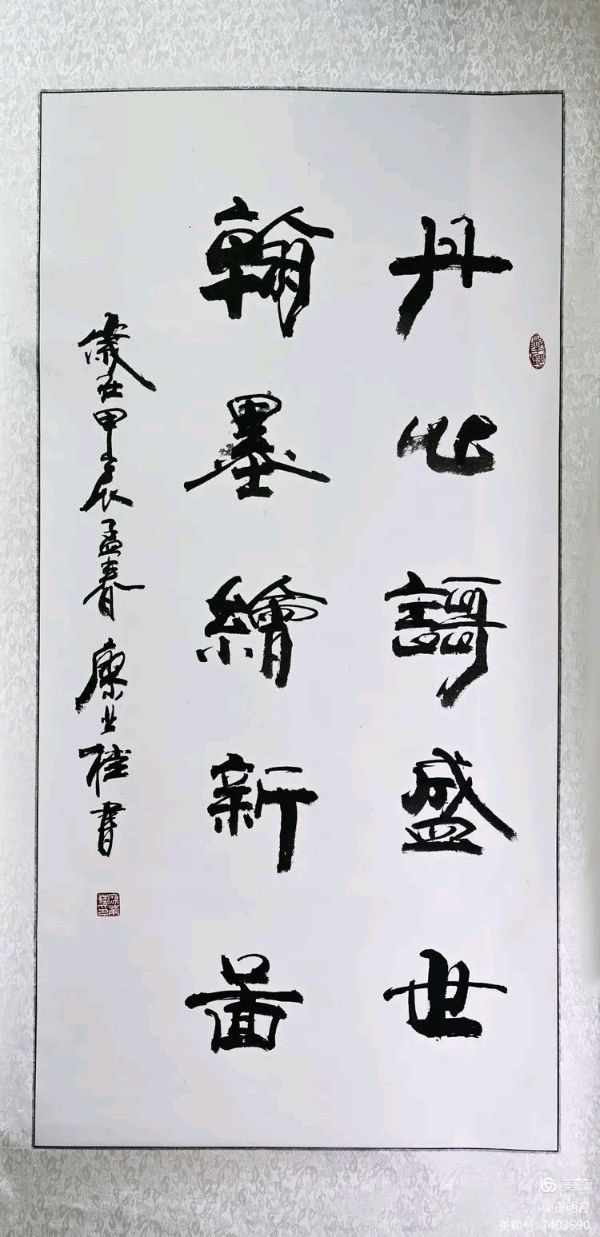 丹心謌盛世
翰墨繪新啚
歲在甲辰孟春 康业桂書
美篇号:7403590